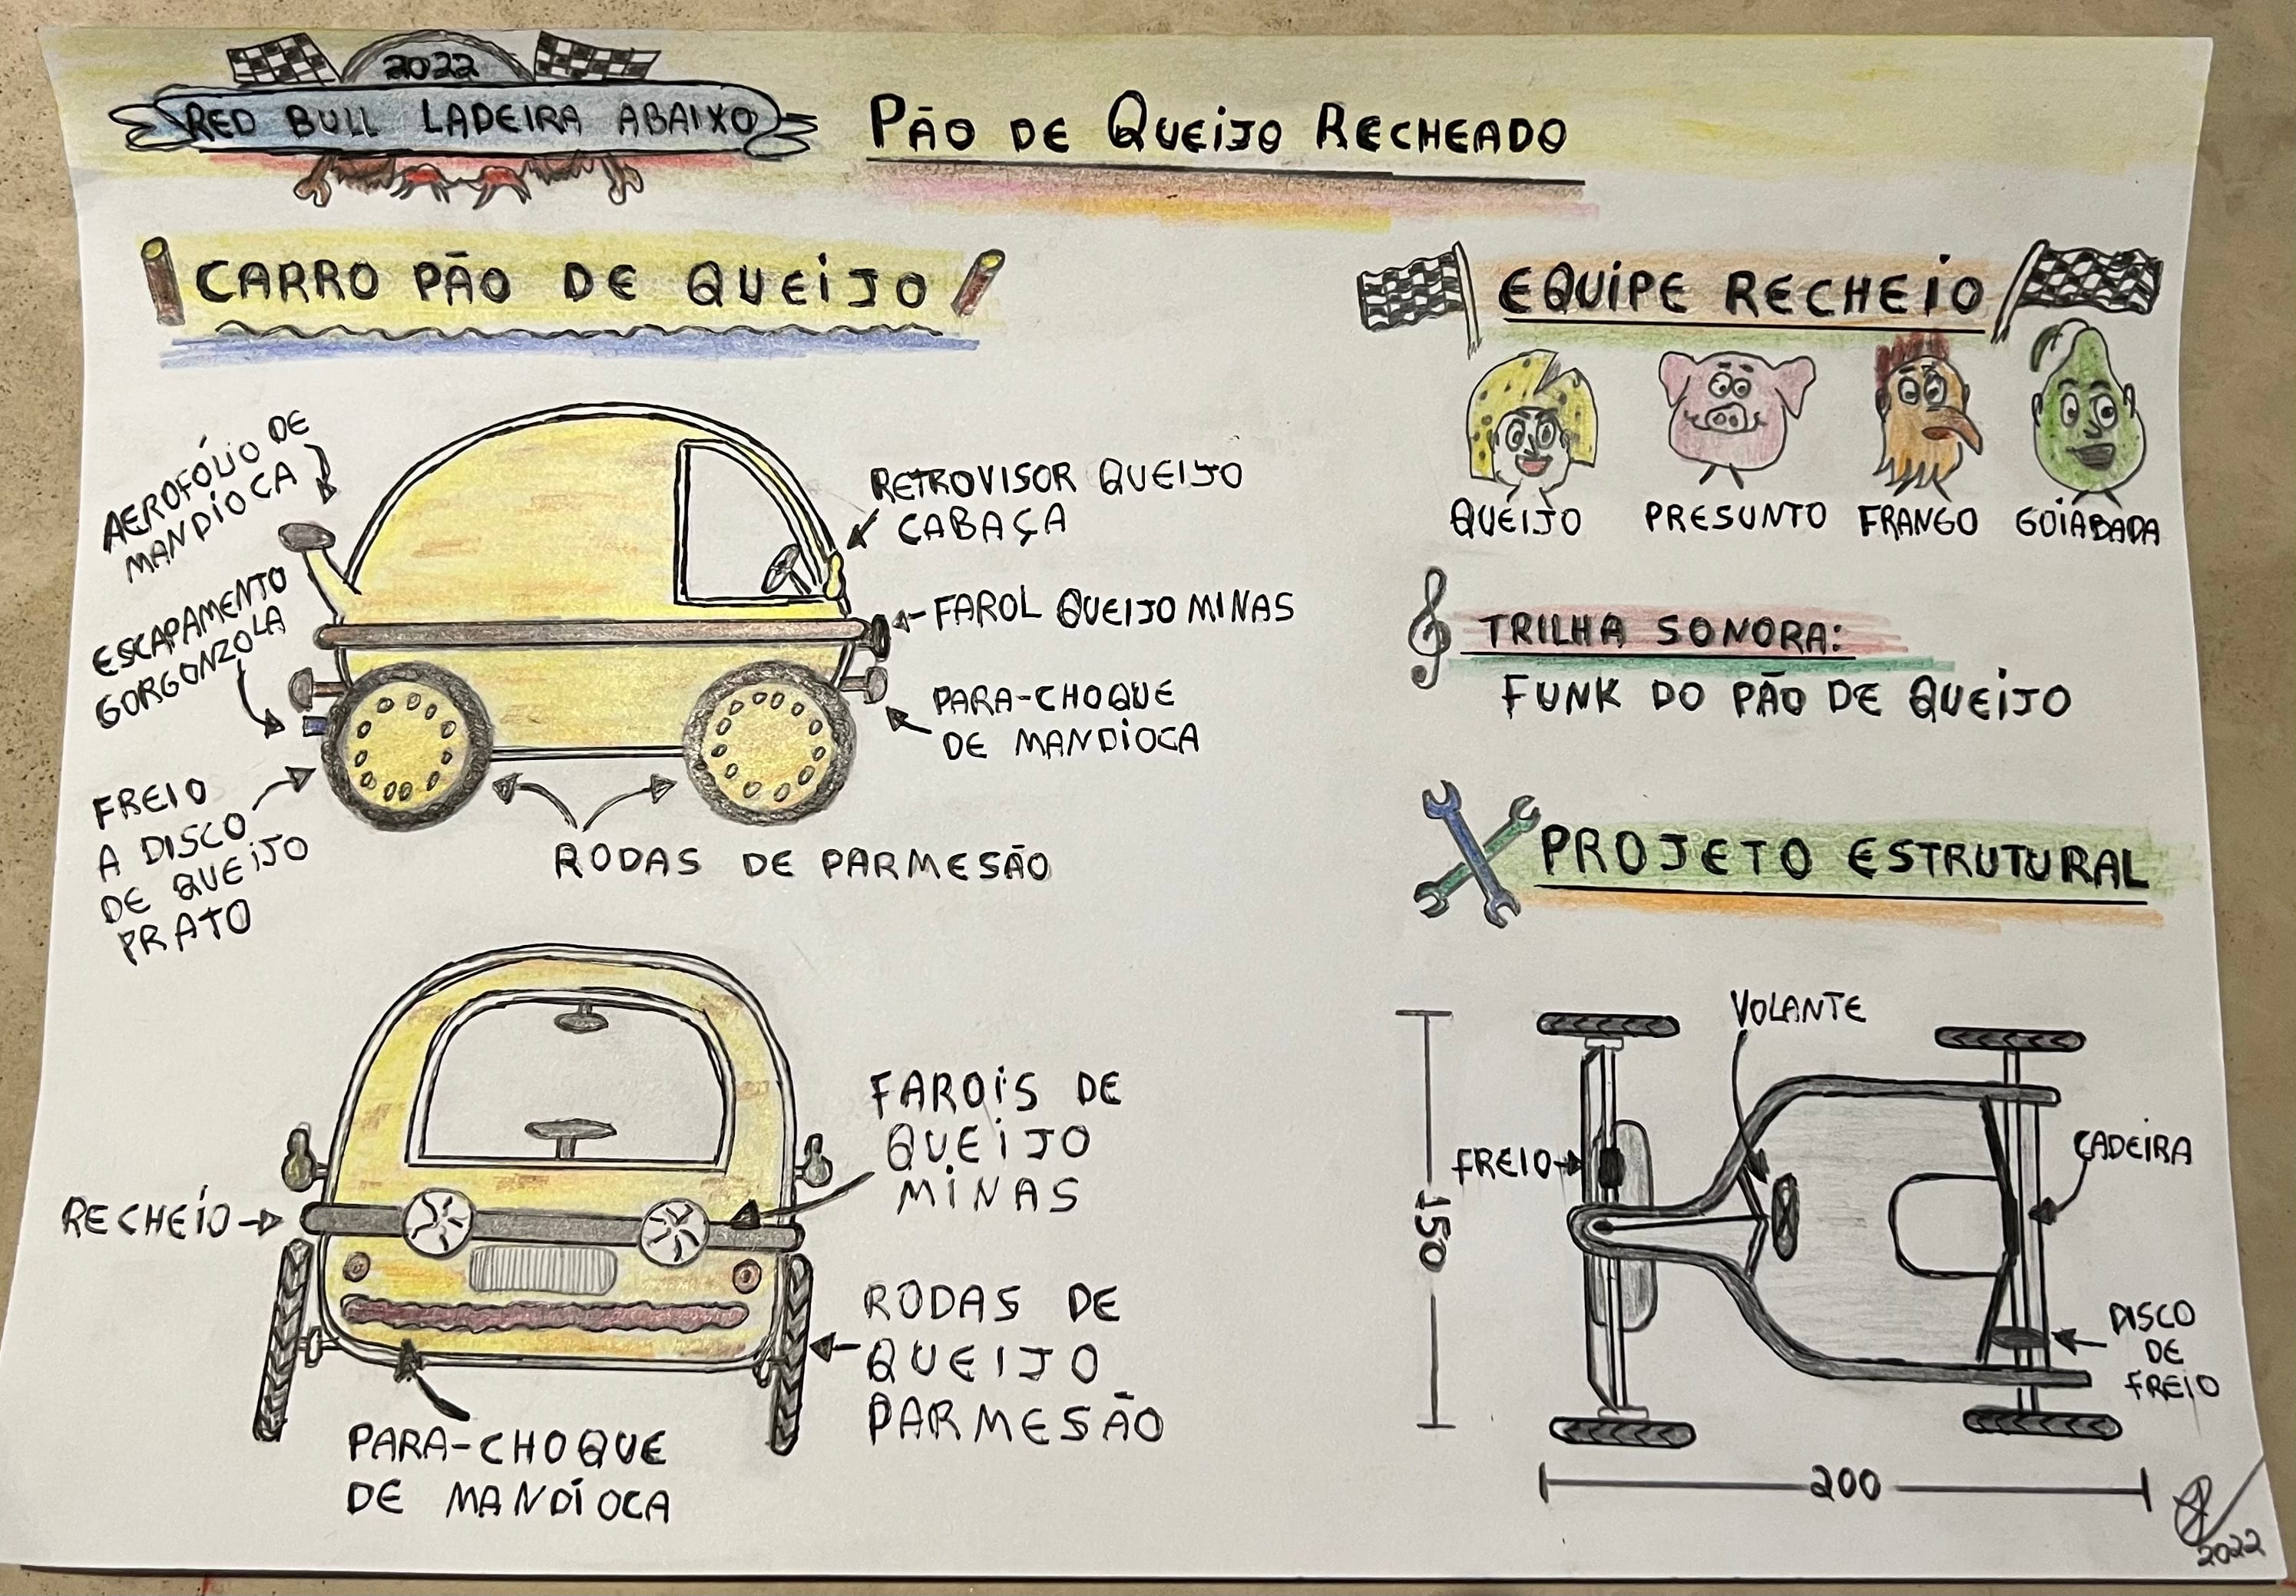 2022
RED BULL LADEIRA ABAIXO
PÃO DE QUEIJO RECHEADO
CARRO PÃO DE QUEIJO
AEROFÓLIO DE
MANDIOCA
ESCAPAMENTO
GORGONZOLA
FREIO
A DISCO
DE QUEIJO
PRATO
RETROVISOR QUEIJO
CABAÇA
FAROL QUEIJO MINAS
PARA-CHOQUE
DE MANDIOCA
RODAS DE PARMESÃO
RECHEIO
FAROIS DE
QUEIJO
MINAS
RODAS DE
QUEIJO
PARMESÃO
PARA-CHOQUE
DE MANDIOCA
EQUIPE RECHEIO
QUEIJO
PRESUNTO
FRANGO
GOIABADA
TRILHA SONORA:
FUNK DO PÃO DE QUEIJO
PROJETO ESTRUTURAL
VOLANTE
FREIO
CADEIRA
150
DISCO
DE
FREIO
200
2022